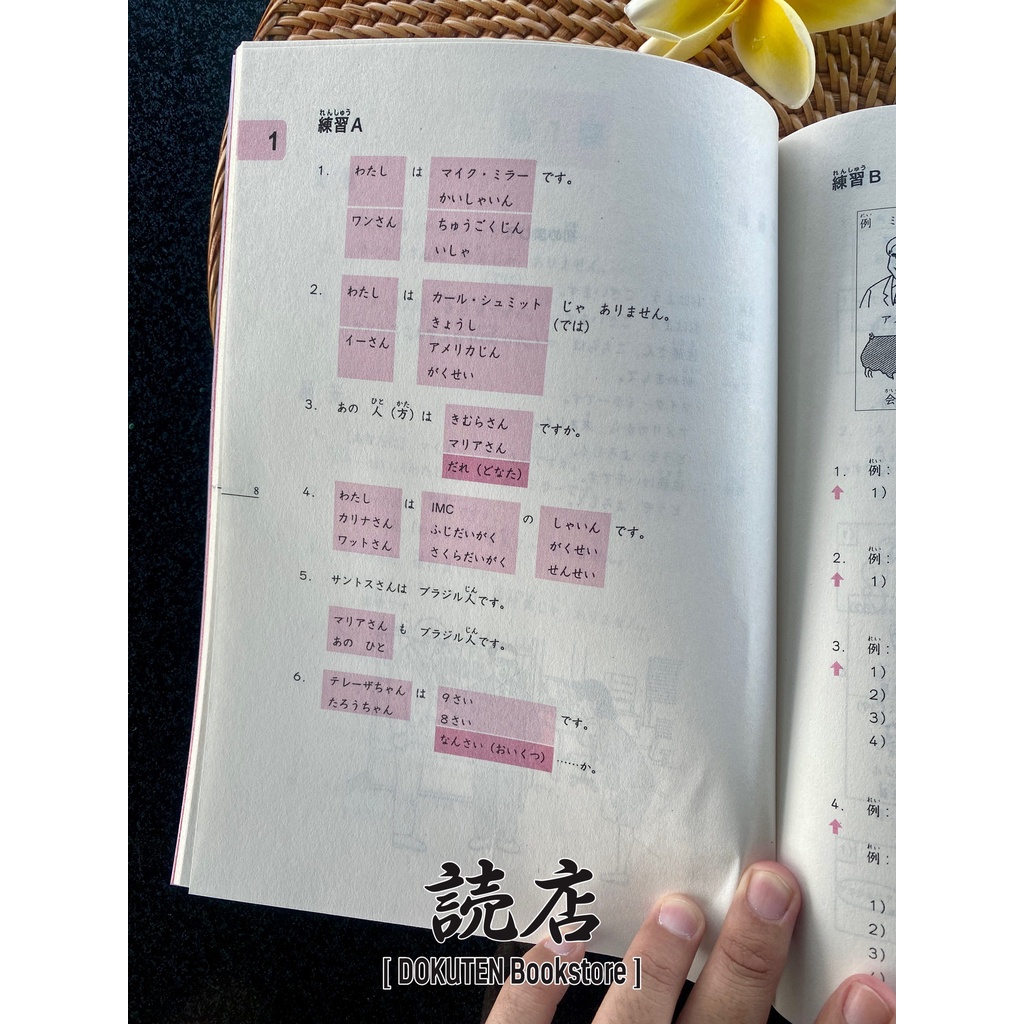 1
れんしゅう
練習 A
1. わたし は マイク・ミラー です。
かいしゃいん
ワンさん ちゅうごくじん
いしゃ
2. わたし は カール・シュミット じゃ ありません。
きょうし (では)
イーさん アメリカじん
がくせい
ひと かた
3. あの 人(方)は きむらさん ですか。
マリアさん
だれ(どなた)
8
4. わたし は IMC の しゃいん です。
カリナさん ふじだいがく がくせい
ワットさん さくらだいがく せんせい
じん
5. サントスさんは ブラジル人です。
じん
マリアさん も ブラジル人です。
あの ひと
6. テレーザちゃん は 9さい です。
たろうちゃん 8さい
なんさい(おいくつ) ……か。
れんしゅう
練習 B
れい
例
れい
1. 例:
1)
れい
2. 例:
1)
れい
3. 例:
1)
2)
3)
4)
れい
4. 例:
れい
例:
1)
2)
3)
読店
[ DOKUTEN Bookstore ]